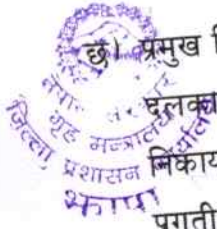 छ) प्रमुख
दलका
निकाय
प्रगती
नेपाल सरकार
गृह मन्त्रालय
जिल्ला प्रशासन कार्यालय
झापा